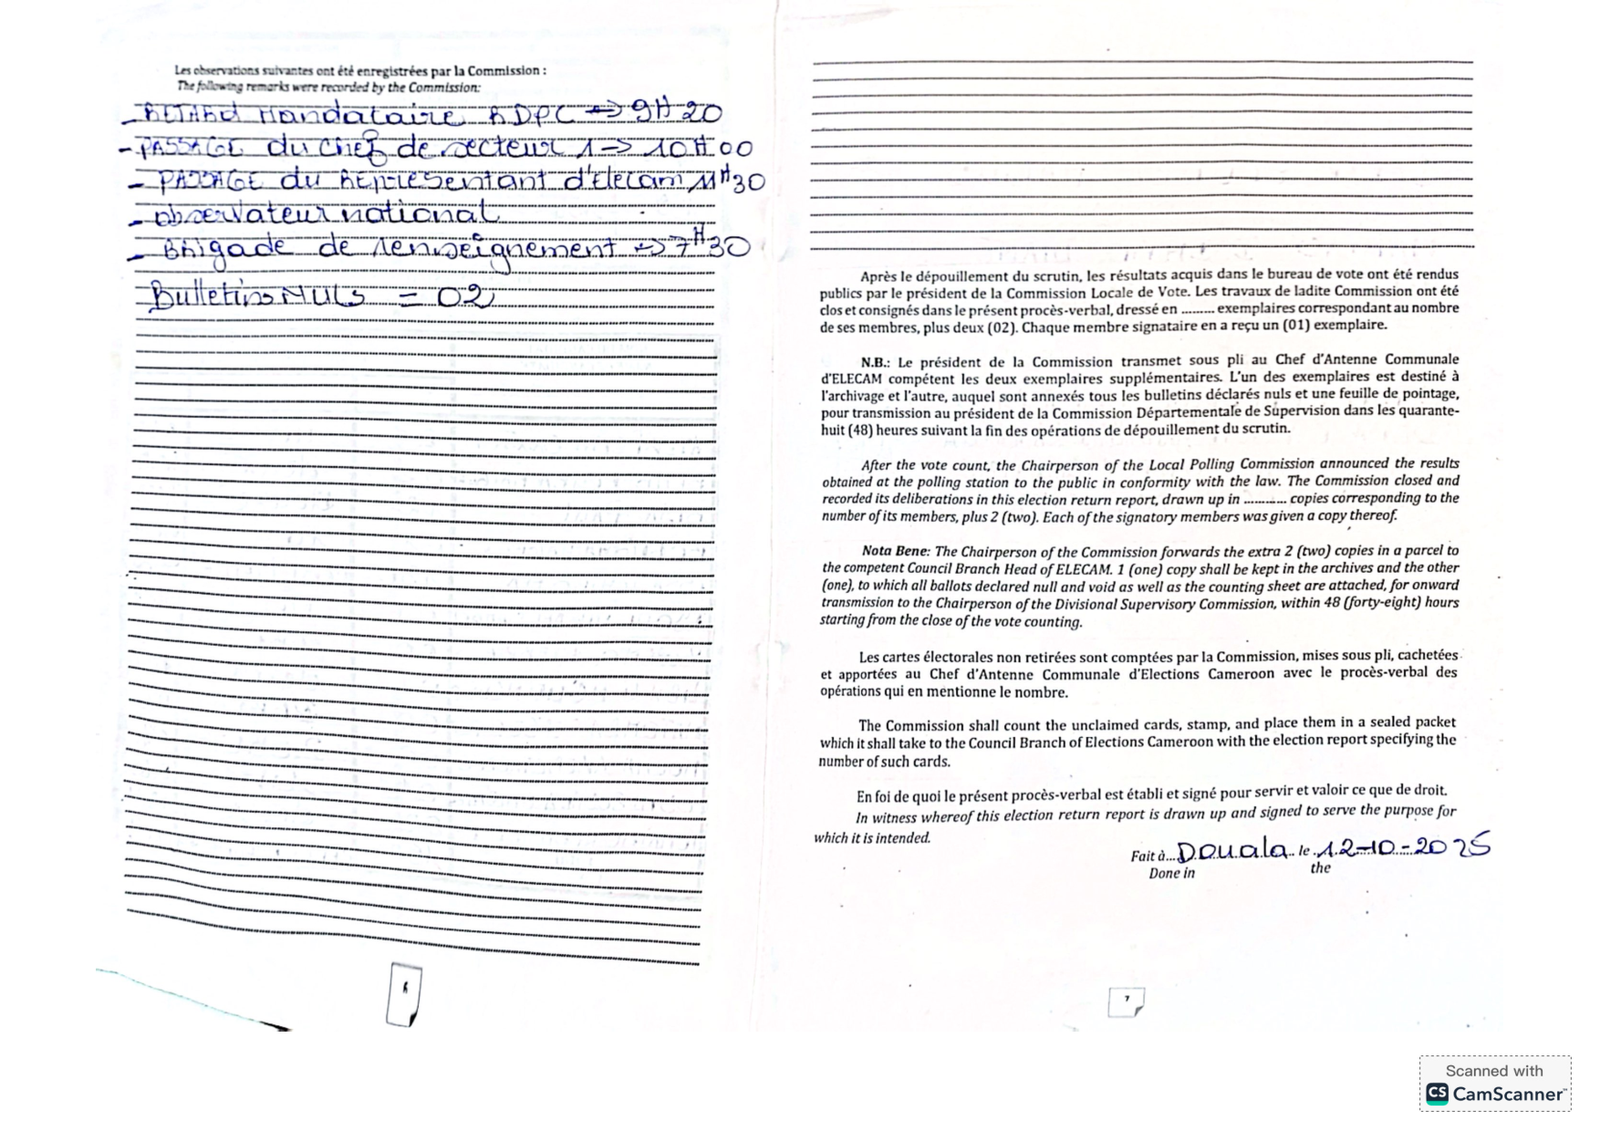 Les observations suivantes ont été enregistrées par la Commission :
The following remarks were recorded by the Commission:
- RETARD Mandataire RDPC => 9H 20
- PASSAGE du chef de secteur 1 -> 10H00
- PASSAGE du Représentant d'Elecam 11H30
- observateur national
- Brigade de renseignement => 7H30
Bulletins NULS = 02
6
Après le dépouillement du scrutin, les résultats acquis dans le bureau de vote ont été rendus
publics par le président de la Commission Locale de Vote. Les travaux de ladite Commission ont été
clos et consignés dans le présent procès-verbal, dressé en ......... exemplaires correspondant au nombre
de ses membres, plus deux (02). Chaque membre signataire en a reçu un (01) exemplaire.
N.B.: Le président de la Commission transmet sous pli au Chef d'Antenne Communale
d'ELECAM compétent les deux exemplaires supplémentaires. L'un des exemplaires est destiné à
l'archivage et l'autre, auquel sont annexés tous les bulletins déclarés nuls et une feuille de pointage,
pour transmission au président de la Commission Départementale de Supervision dans les quarante-
huit (48) heures suivant la fin des opérations de dépouillement du scrutin.
After the vote count, the Chairperson of the Local Polling Commission announced the results
obtained at the polling station to the public in conformity with the law. The Commission closed and
recorded its deliberations in this election return report, drawn up in ........... copies corresponding to the
number of its members, plus 2 (two). Each of the signatory members was given a copy thereof.
Nota Bene: The Chairperson of the Commission forwards the extra 2 (two) copies in a parcel to
the competent Council Branch Head of ELECAM. 1 (one) copy shall be kept in the archives and the other
(one), to which all ballots declared null and void as well as the counting sheet are attached, for onward
transmission to the Chairperson of the Divisional Supervisory Commission, within 48 (forty-eight) hours
starting from the close of the vote counting.
Les cartes électorales non retirées sont comptées par la Commission, mises sous pli, cachetées
et apportées au Chef d'Antenne Communale d'Elections Cameroon avec le procès-verbal des
opérations qui en mentionne le nombre.
The Commission shall count the unclaimed cards, stamp, and place them in a sealed packet
which it shall take to the Council Branch of Elections Cameroon with the election report specifying the
number of such cards.
En foi de quoi le présent procès-verbal est établi et signé pour servir et valoir ce que de droit.
In witness whereof this election return report is drawn up and signed to serve the purpose for
which it is intended.
Fait à... Douala.. le .12-10-2025
Done in the
7
Scanned with
CS CamScanner